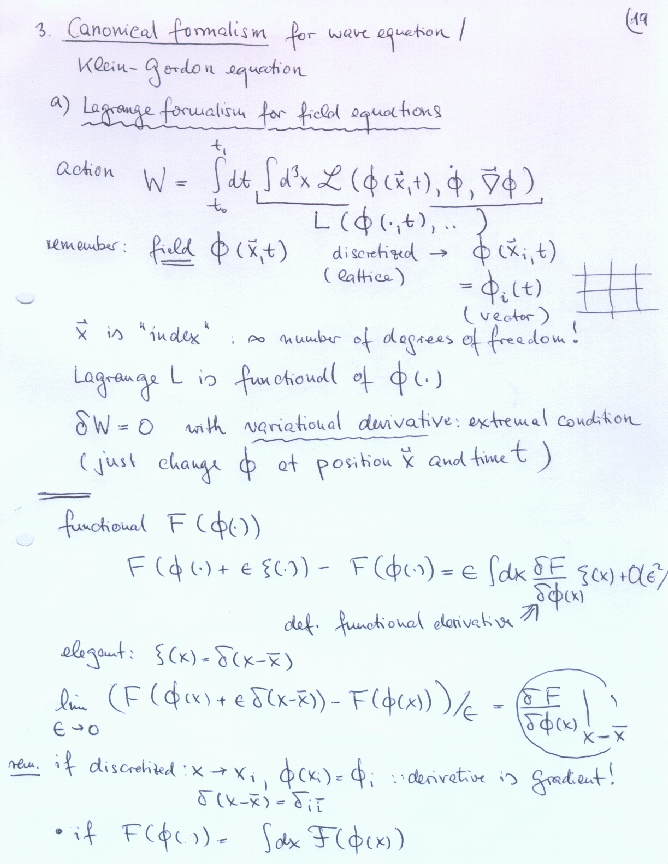 (19
3. Canonical formalism for wave equation /
Klein-Gordon equation
a) Lagrange formalism for field equations
action W = ∫_{t₀}^{t₁} dt ∫ d³x ℒ (ϕ(x⃗,t), ϕ̇, ∇⃗ϕ)
L (ϕ(·,t), .. )
remember: field ϕ(x⃗,t) discretized → ϕ(x⃗ᵢ,t)
(lattice) = ϕᵢ(t)
(vector)
x⃗ is "index" : ∞ number of degrees of freedom!
Lagrange L is functional of ϕ(.)
δW = 0 with variational derivative: extremal condition
(just change ϕ at position x⃗ and time t)
functional F(ϕ(·))
F(ϕ(·) + ϵ ξ(·)) - F(ϕ(·)) = ϵ ∫dx δF/δϕ(x) ξ(x) + O(ϵ²)
def. functional derivative
elegant: ξ(x) = δ(x-x̄)
lim_{ϵ→0} (F(ϕ(x) + ϵ δ(x-x̄)) - F(ϕ(x)))/ϵ = δF/δϕ(x) |_{x-x̄}
rem. if discretized: x → xᵢ, ϕ(xᵢ) = ϕᵢ : derivative is gradient!
δ(x-x̄) = δ_{i ī}
• if F(ϕ(·)) = ∫dx ℱ(ϕ(x))